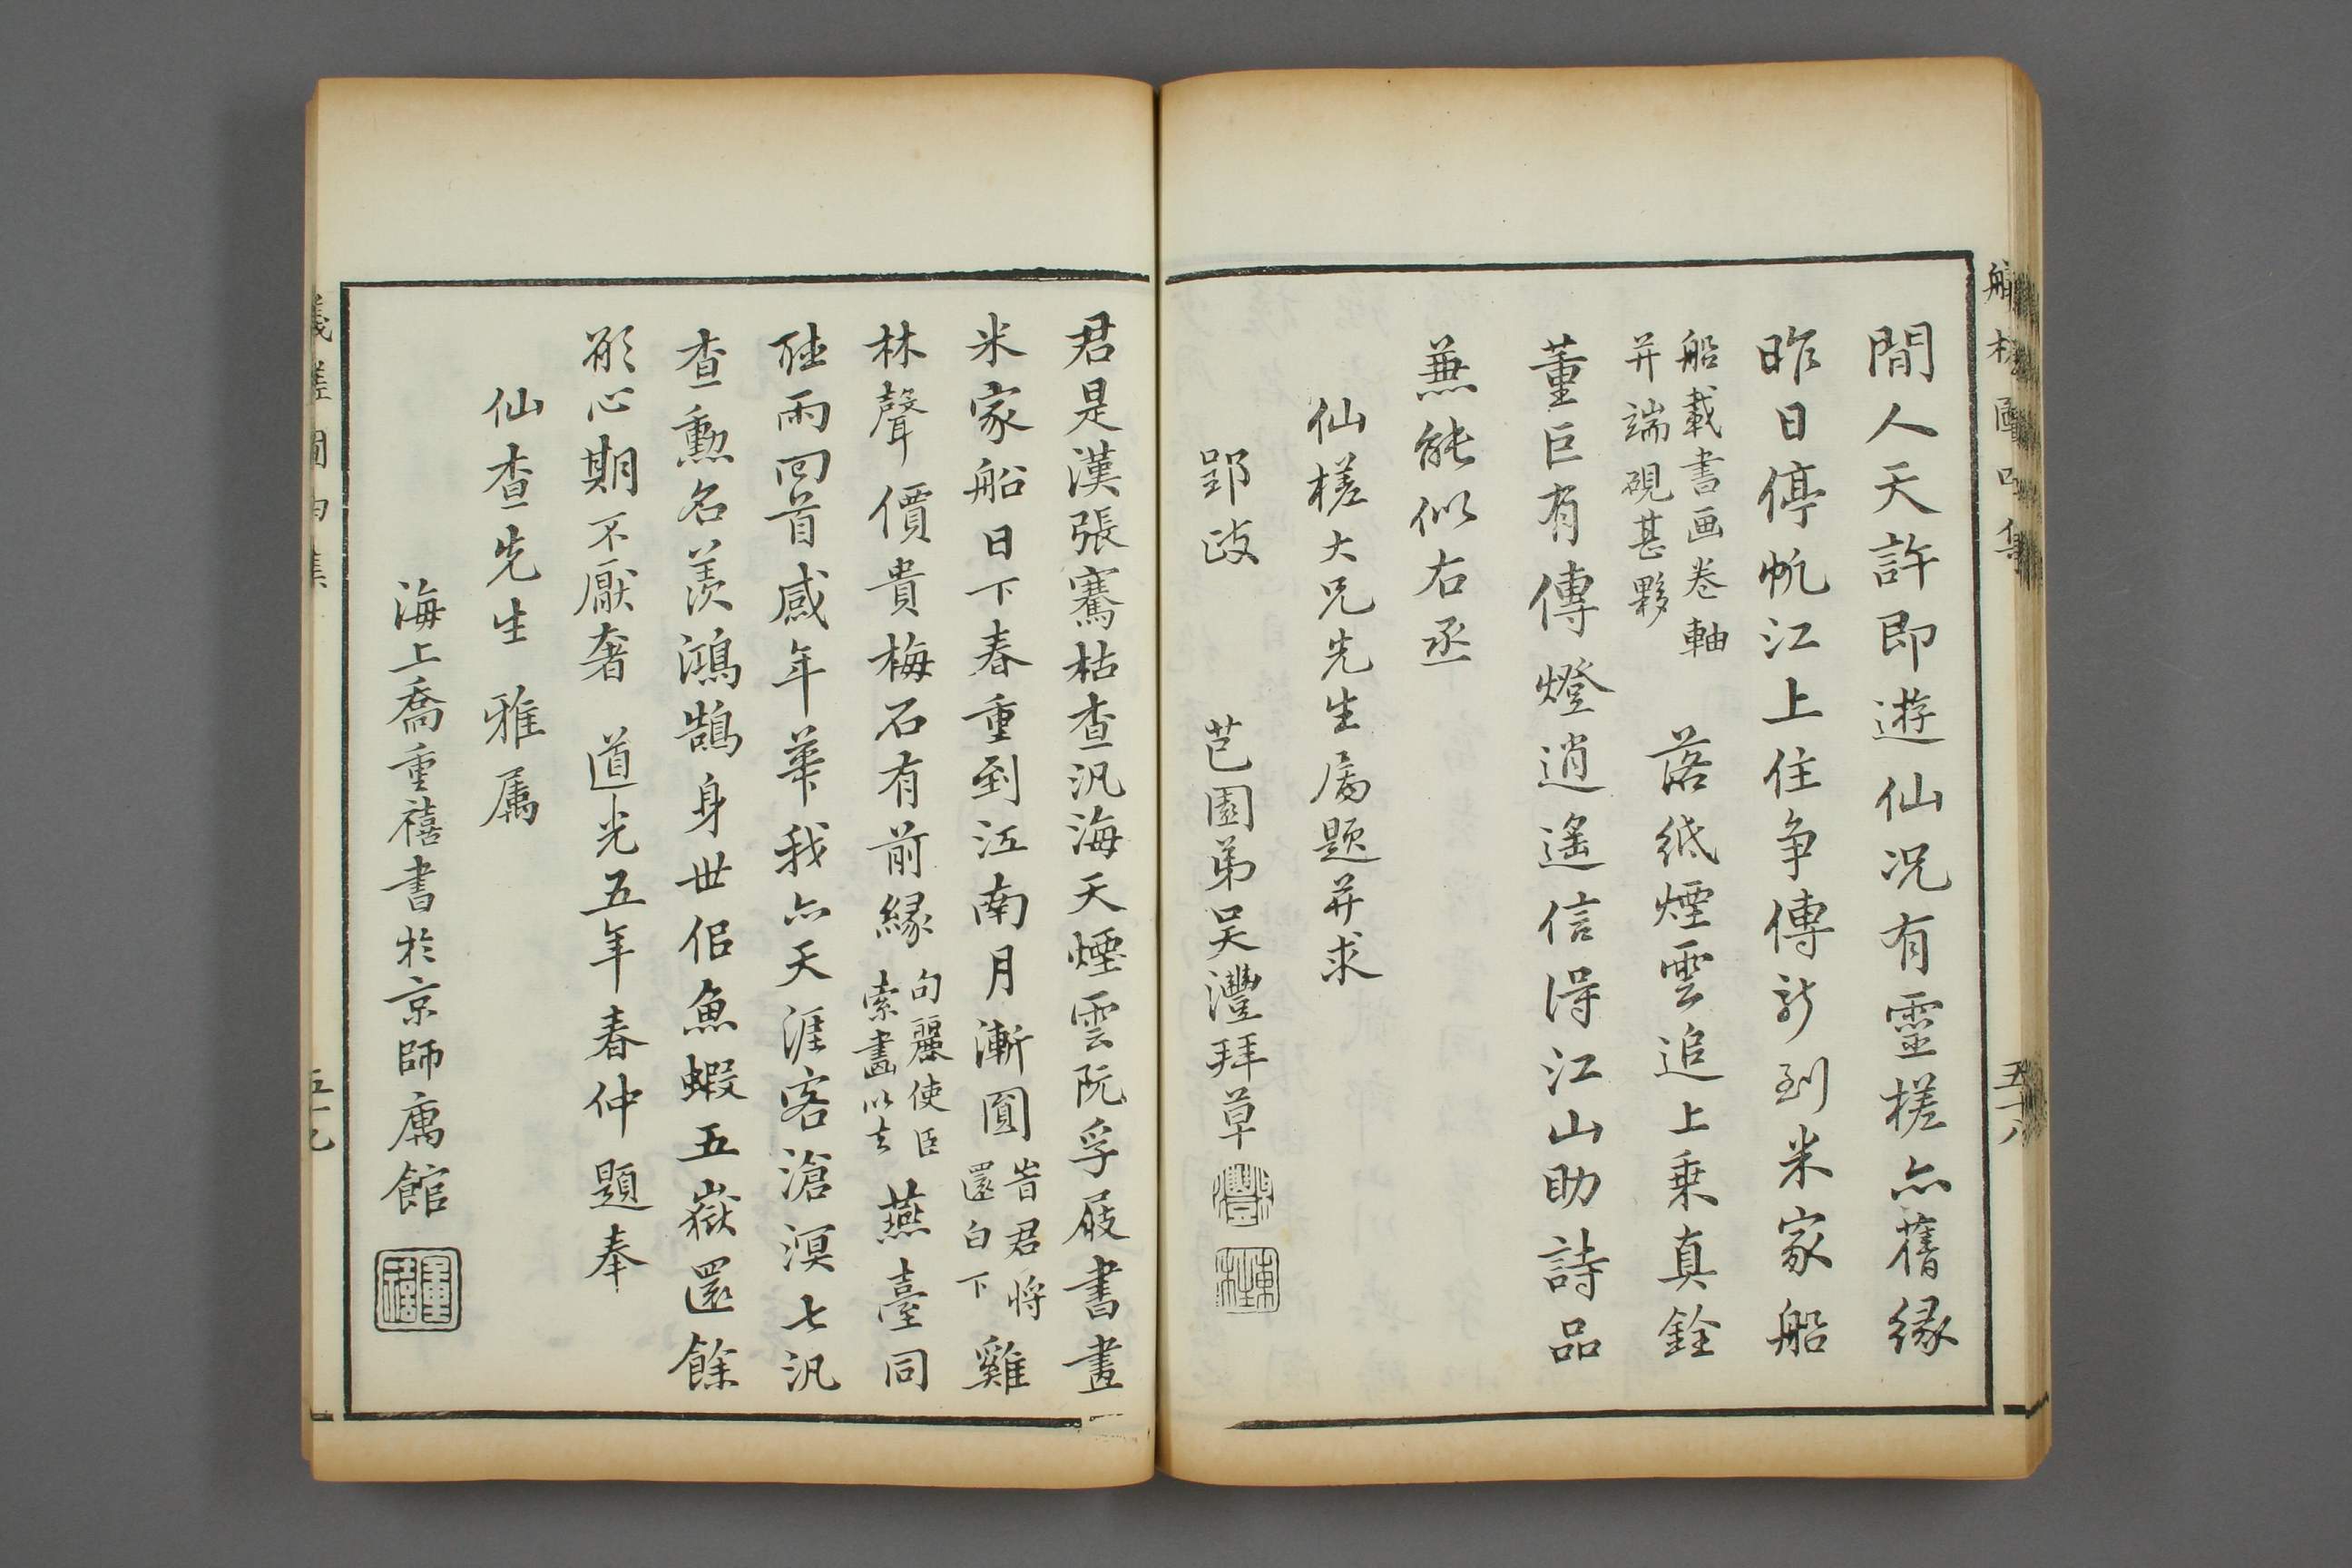 閒人天許即遊仙况有靈槎亦舊緣
昨日停帆江上住争傳新到米家船
船載書画卷軸
并端硯甚夥
落紙煙雲追上乗真銓
董巨有傳燈逍遥信得江山助詩品
兼能似右丞
仙槎大兄先生属題并求
郢政
芑園弟吴灃拜草
君是漢張騫枯查汎海天煙雲阮孚屐書畫
米家船日下春重到江南月漸圓
昔君将
還白下
雞
林聲價貴梅石有前緣
句麗使臣
索畫以去
燕臺同
聴雨回首感年華我亦天涯客滄溟七汎
查勳名羡鴻鵠身世侣魚蝦五嶽還餘
願心期不厭奢
道光五年春仲題奉
仙查先生雅属
海上喬重禧書於京師寓館
重禧
五十八